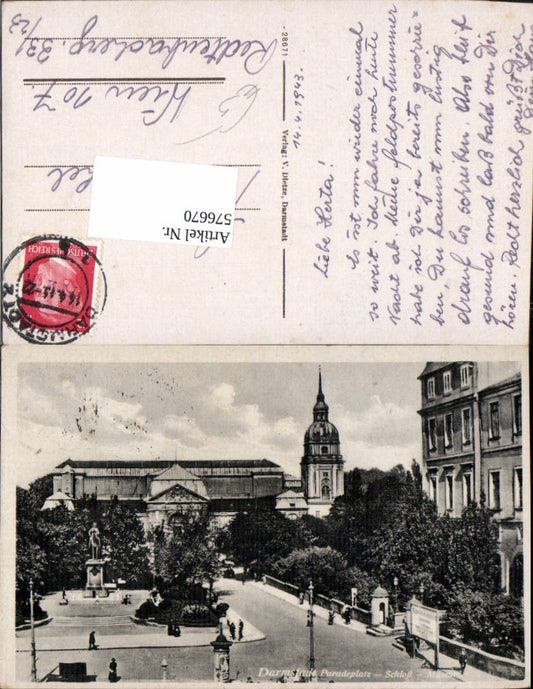 14.4.1943.
Liebe Herta!
Es ist nun wieder einmal
so weit. Ich fahre noch heute
Nacht ab. Meine Feldpostnummer
habe ich Dir ja bereits geschrie-
ben, Du kannst nun lustig
drauf los schreiben. Also bleib
gesund und laß bald von Dir
hören. Recht herzlich grüßt Dich
- 28671
Verlag: V. Dietze, Darmstadt
Wien 107.
Redtenbacherg. 331
/23
Artikel Nr.
576670
DEUTSCHES REICH
DARMSTADT 2
Darmstadt Paradeplatz - Schloß - Museum